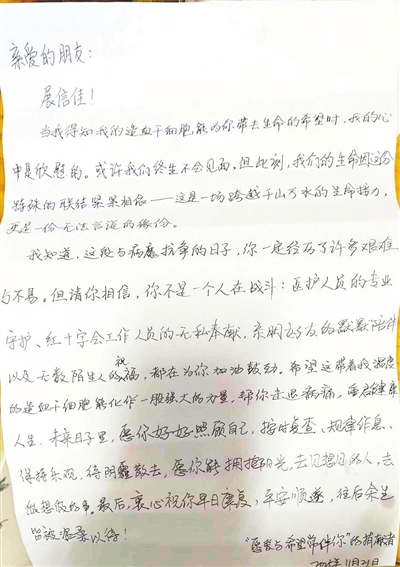 亲爱的朋友：
展信佳！
当我得知我的造血干细胞能为你带去生命的希望时，我的心
中是欣慰的。或许我们终生不会见面，但此刻，我们的生命因这份
特殊的联结紧紧相依——这是一场跨越千山万水的生命接力，
更是一份无法言说的缘份。
我知道，这段与病魔抗争的日子，你一定经历了许多艰难
与不易。但请你相信，你不是一个人在战斗：医护人员的专业
守护、红十字会工作人员的无私奉献、亲朋好友的默默陪伴
以及无数陌生人的祝福，都在为你加油鼓劲。希望这带着我温度
的造血干细胞能化作一股强大的力量，帮你走出病痛，重启健康
人生。未来日子里，愿你好好照顾自己，按时复查、规律作息、
保持乐观，待阴霾散去，愿你能拥抱阳光，去见想见的人，去
做想做的事。最后，衷心祝你早日康复，平安顺遂，往后余生
皆被温柔以待！
“愿爱与希望常伴你”的捐献者
2025年11月21日